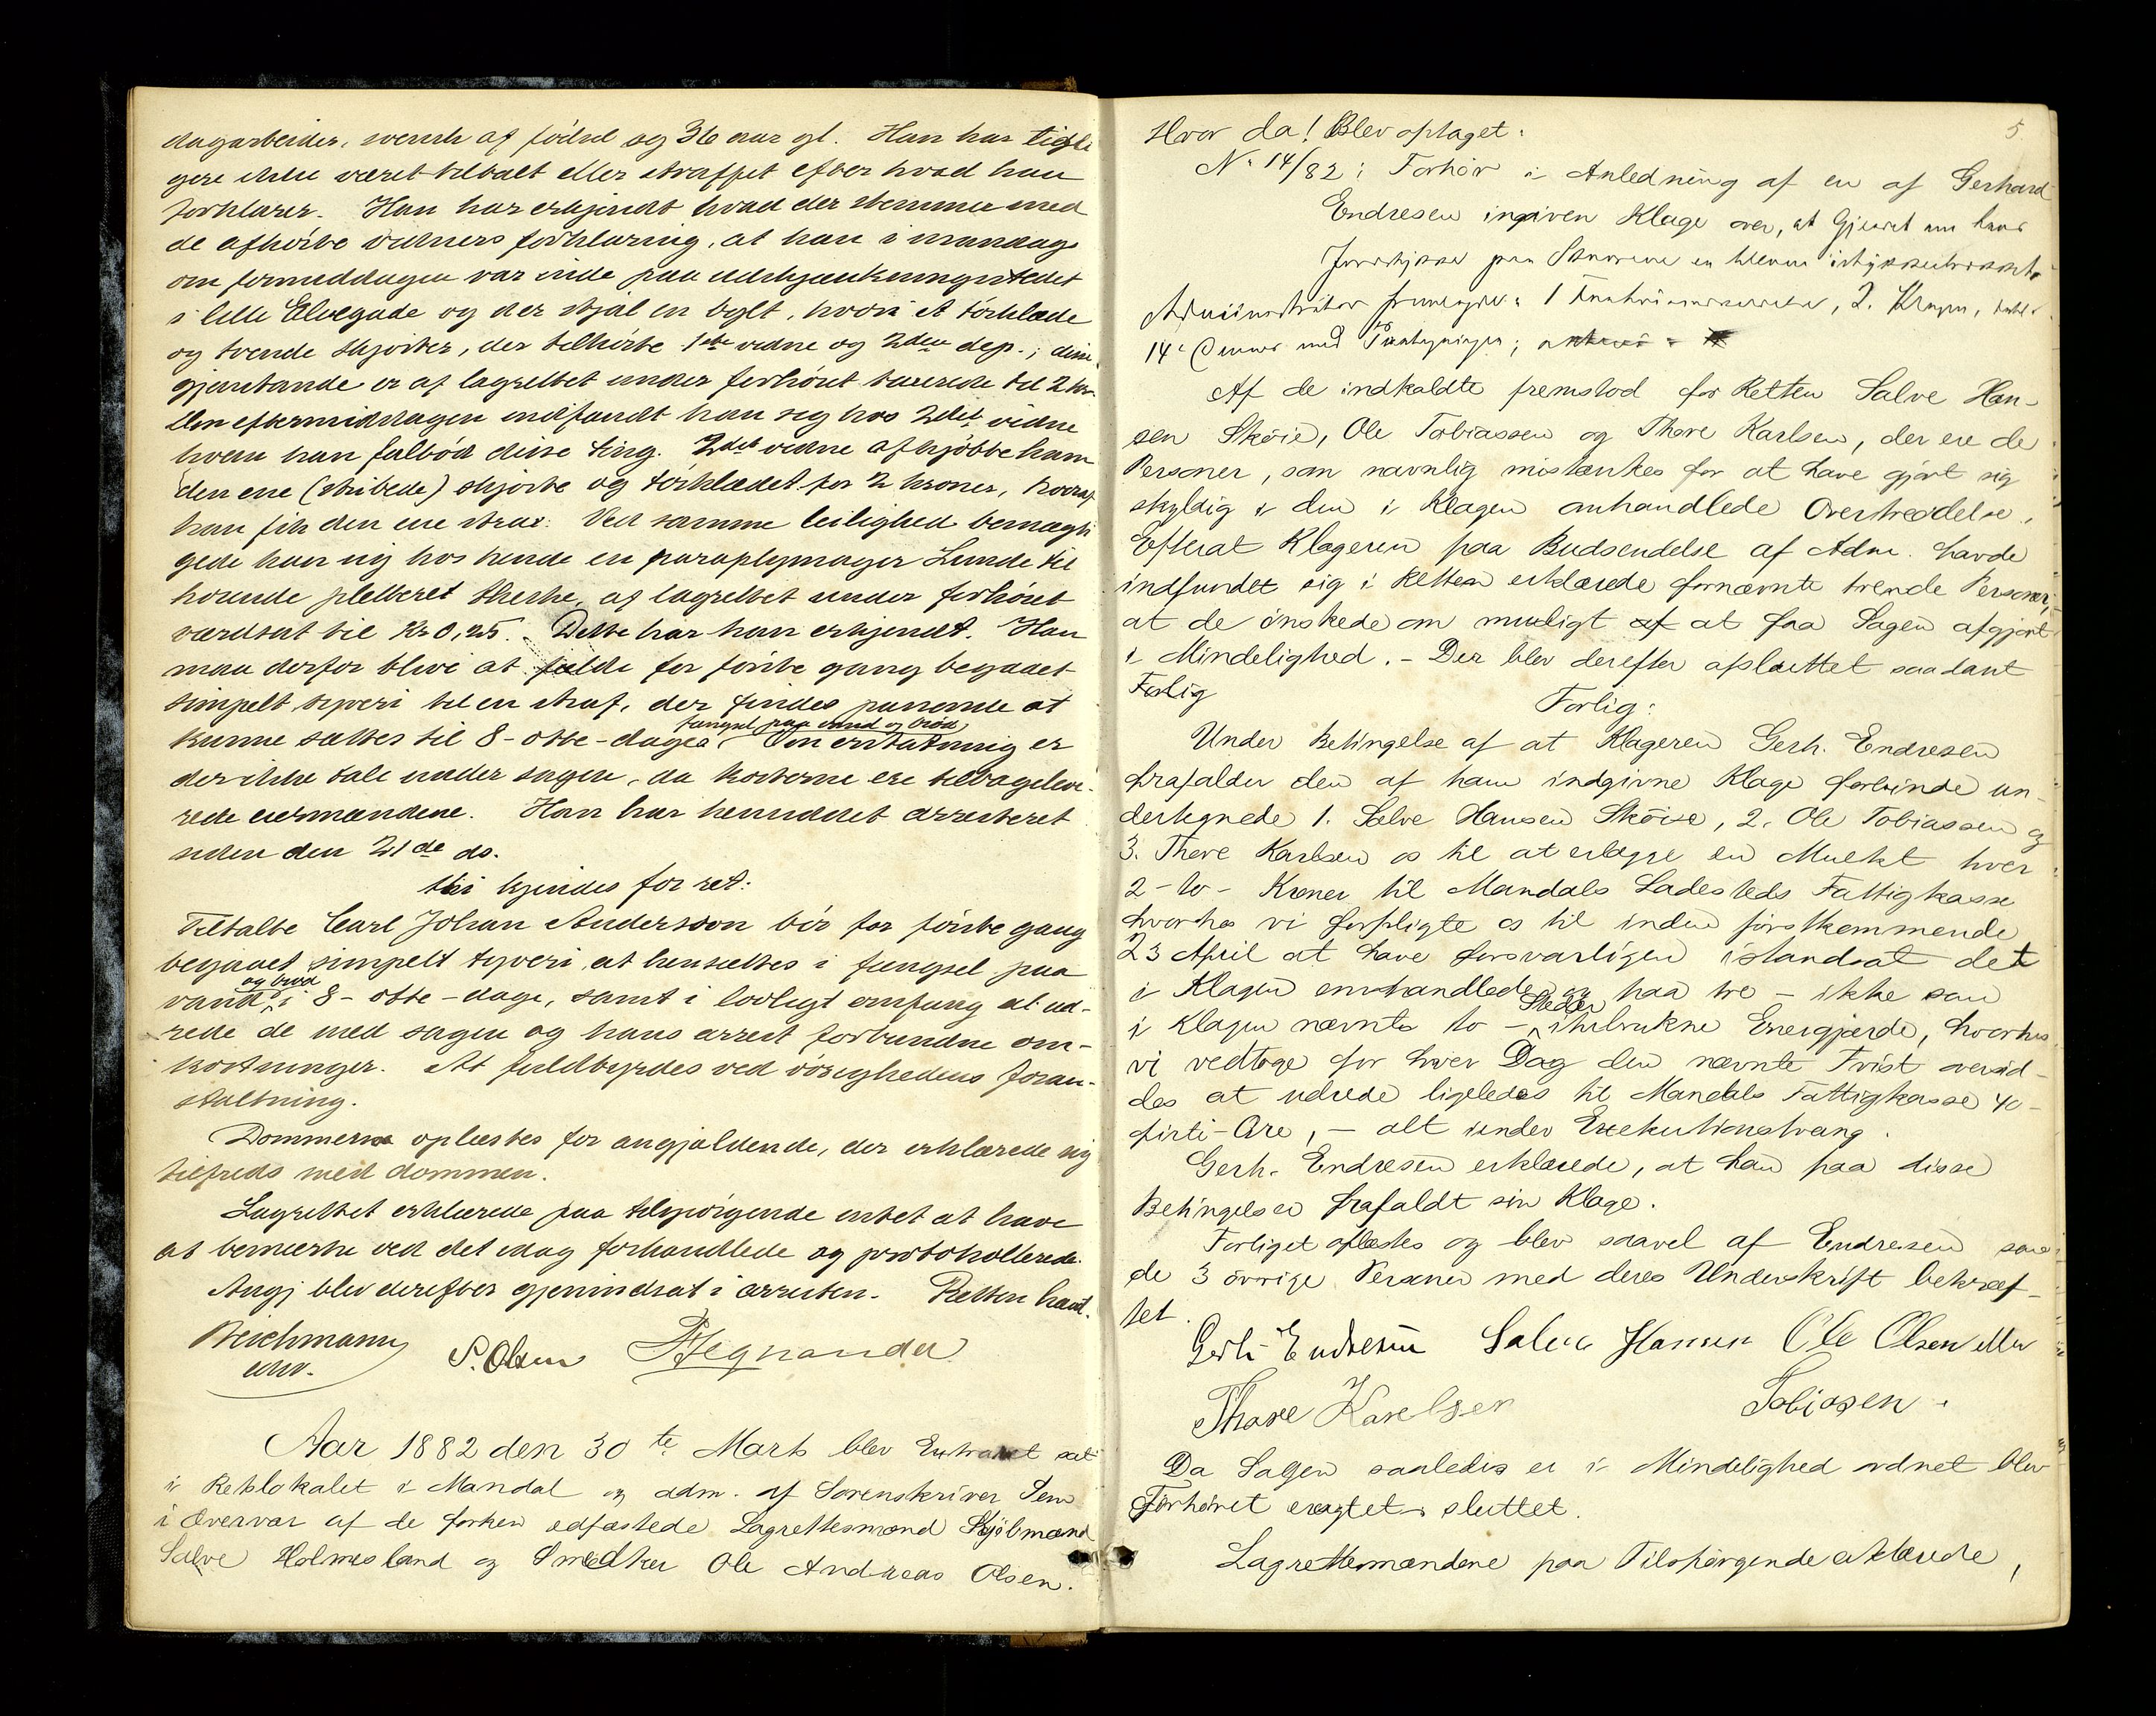 dagarbeider, svensk af födsel og 36 aar gl. Han har tidli
gere ikke været tiltalt eller straffet efter hvad han
forklarer. Han har erkjendt hvad der stemmer med
de afhörte vidners forklaring, at han i mandags
om formiddagen var inde paa udskjænkningsstedet
i lille Elvegade og der stjal en bylt, hvori et törklæde
og tvende skjorter, der tilhörte 1ste vidne og 2den dep.; disse
gjenstande er af lagrettet under forhöret taxerede til 2 kr.
Om eftermiddagen indfandt han sig hos 2det vidne
hvem han falböd disse ting. 2det vidne afkjöbte ham
den ene (stribede) skjorte og törklædet for 2 kroner, hvoraf
han fik den ene strax. Ved samme leilighed bemægti
gede han sig hos hende en paraplymager Lunde til
hörende pletteret theske, af lagrettet under forhöret
værdsat til Kr 0,25. Dette har han erkjendt. Han
maa derfor blive at fælde for förste gang begaaet
simpelt tyveri til en straf, der findes passende at
kunne sættes til 8 - otte - dages fængsel paa vand og bröd. Om erstatning er
der ikke tale under sagen, da kosterne ere tilbageleve-
rede eiermændene. Han har hensiddet arresteret
siden den 21de ds.
thi kjendes for ret:
Tiltalte Carl Johan Andersson bör for förste gang
begaaet simpelt tyveri at hensættes i fængsel paa
vand og bröd i 8 - otte - dage, samt i lovligt omfang at ud-
rede de med sagen og hans arrest forbundne om-
kostninger. At fuldbyrdes ved övrighedens foran-
staltning.
Dommen oplæstes for angjældende, der erklærede sig
tilfreds med dommen.
Lagrettet erklærede paa tilspörgende intet at have
at bemærke ved det idag forhandlede og protokollerede.
Angj blev derefter gjenindsat i arresten. Retten hævet.
Reichmann
S. Olsen
Aar 1882 den 30te Marts blev Extraret sat
i Retslokalet i Mandal og adm. af Sorenskriver
i Overvær af de forhen edfæstede Lagrettesmænd Skjölmand
Salve Holmesland og Smedker Ole Andreas Olsen.
5
Hvor da! Blev optaget:
No 14/82: Forhör i Anledning af en af Gerhard
Endresen ingiven Klage over, at Gjerdet om hans
Jordstykke paa er bleven
Administrator fremlagde: 1 , 2. Klagen,
14. med Paategninger;
Af de indkaldte fremstod for Retten Salve Han-
sen Sköie, Ole Tobiassen og Thore Karlsen, der ere de
Personer, som navnlig mistænkes for at have gjort sig
skyldig i den i Klagen omhandlede Overtrædelse.
Efterat Klageren paa Budsendelse af Adm. havde
indfundet sig i Retten erklærede fornævnte trende Personer,
at de önskede om muligt af at faa Sagen afgjort
i Mindelighed. - Der blev derefter afsluttet saadant
Forlig
Forlig:
Under Betingelse af at Klageren Gerh. Endresen
frafalder den af ham indgivne Klage forbinde un-
dertegnede 1. Salve Hansen Sköie, 2. Ole Tobiassen og
3. Thore Karlsen os til at erlægge en Mulkt hver
2 - to - Kroner til Mandals Ladesteds Fattigkasse
hvorhos vi forpligte os til inden förstkommende
23 April at have forsvarligen istandsat det
i Klagen omhandlede og paa tre - ikke som
i Klagen nævnte to - Steder itubrukne Energjerde, hvorhos
vi vedtage for hver Dag den nævnte Frist oversid-
des at udrede ligeledes til Mandals Fattigkasse 40 -
firti - Øre, - alt under Exekutionstvang.
Gerh. Endresen erklærede, at han paa disse
Betingelser frafaldt sin Klage.
Forliget oplæstes og blev saavel af Endresen som
de 3 övrige Personer med deres Underskrift bekræf-
tet.
Gerh Endresen Salve Hansen Ole Olsen eller
Thore Karelsen Tobiasen.
Da Sagen saaledes er i Mindelighed ordnet blev
Forhöret eragtet sluttet.
Lagrettesmændene paa Tilspörgende erklærede,